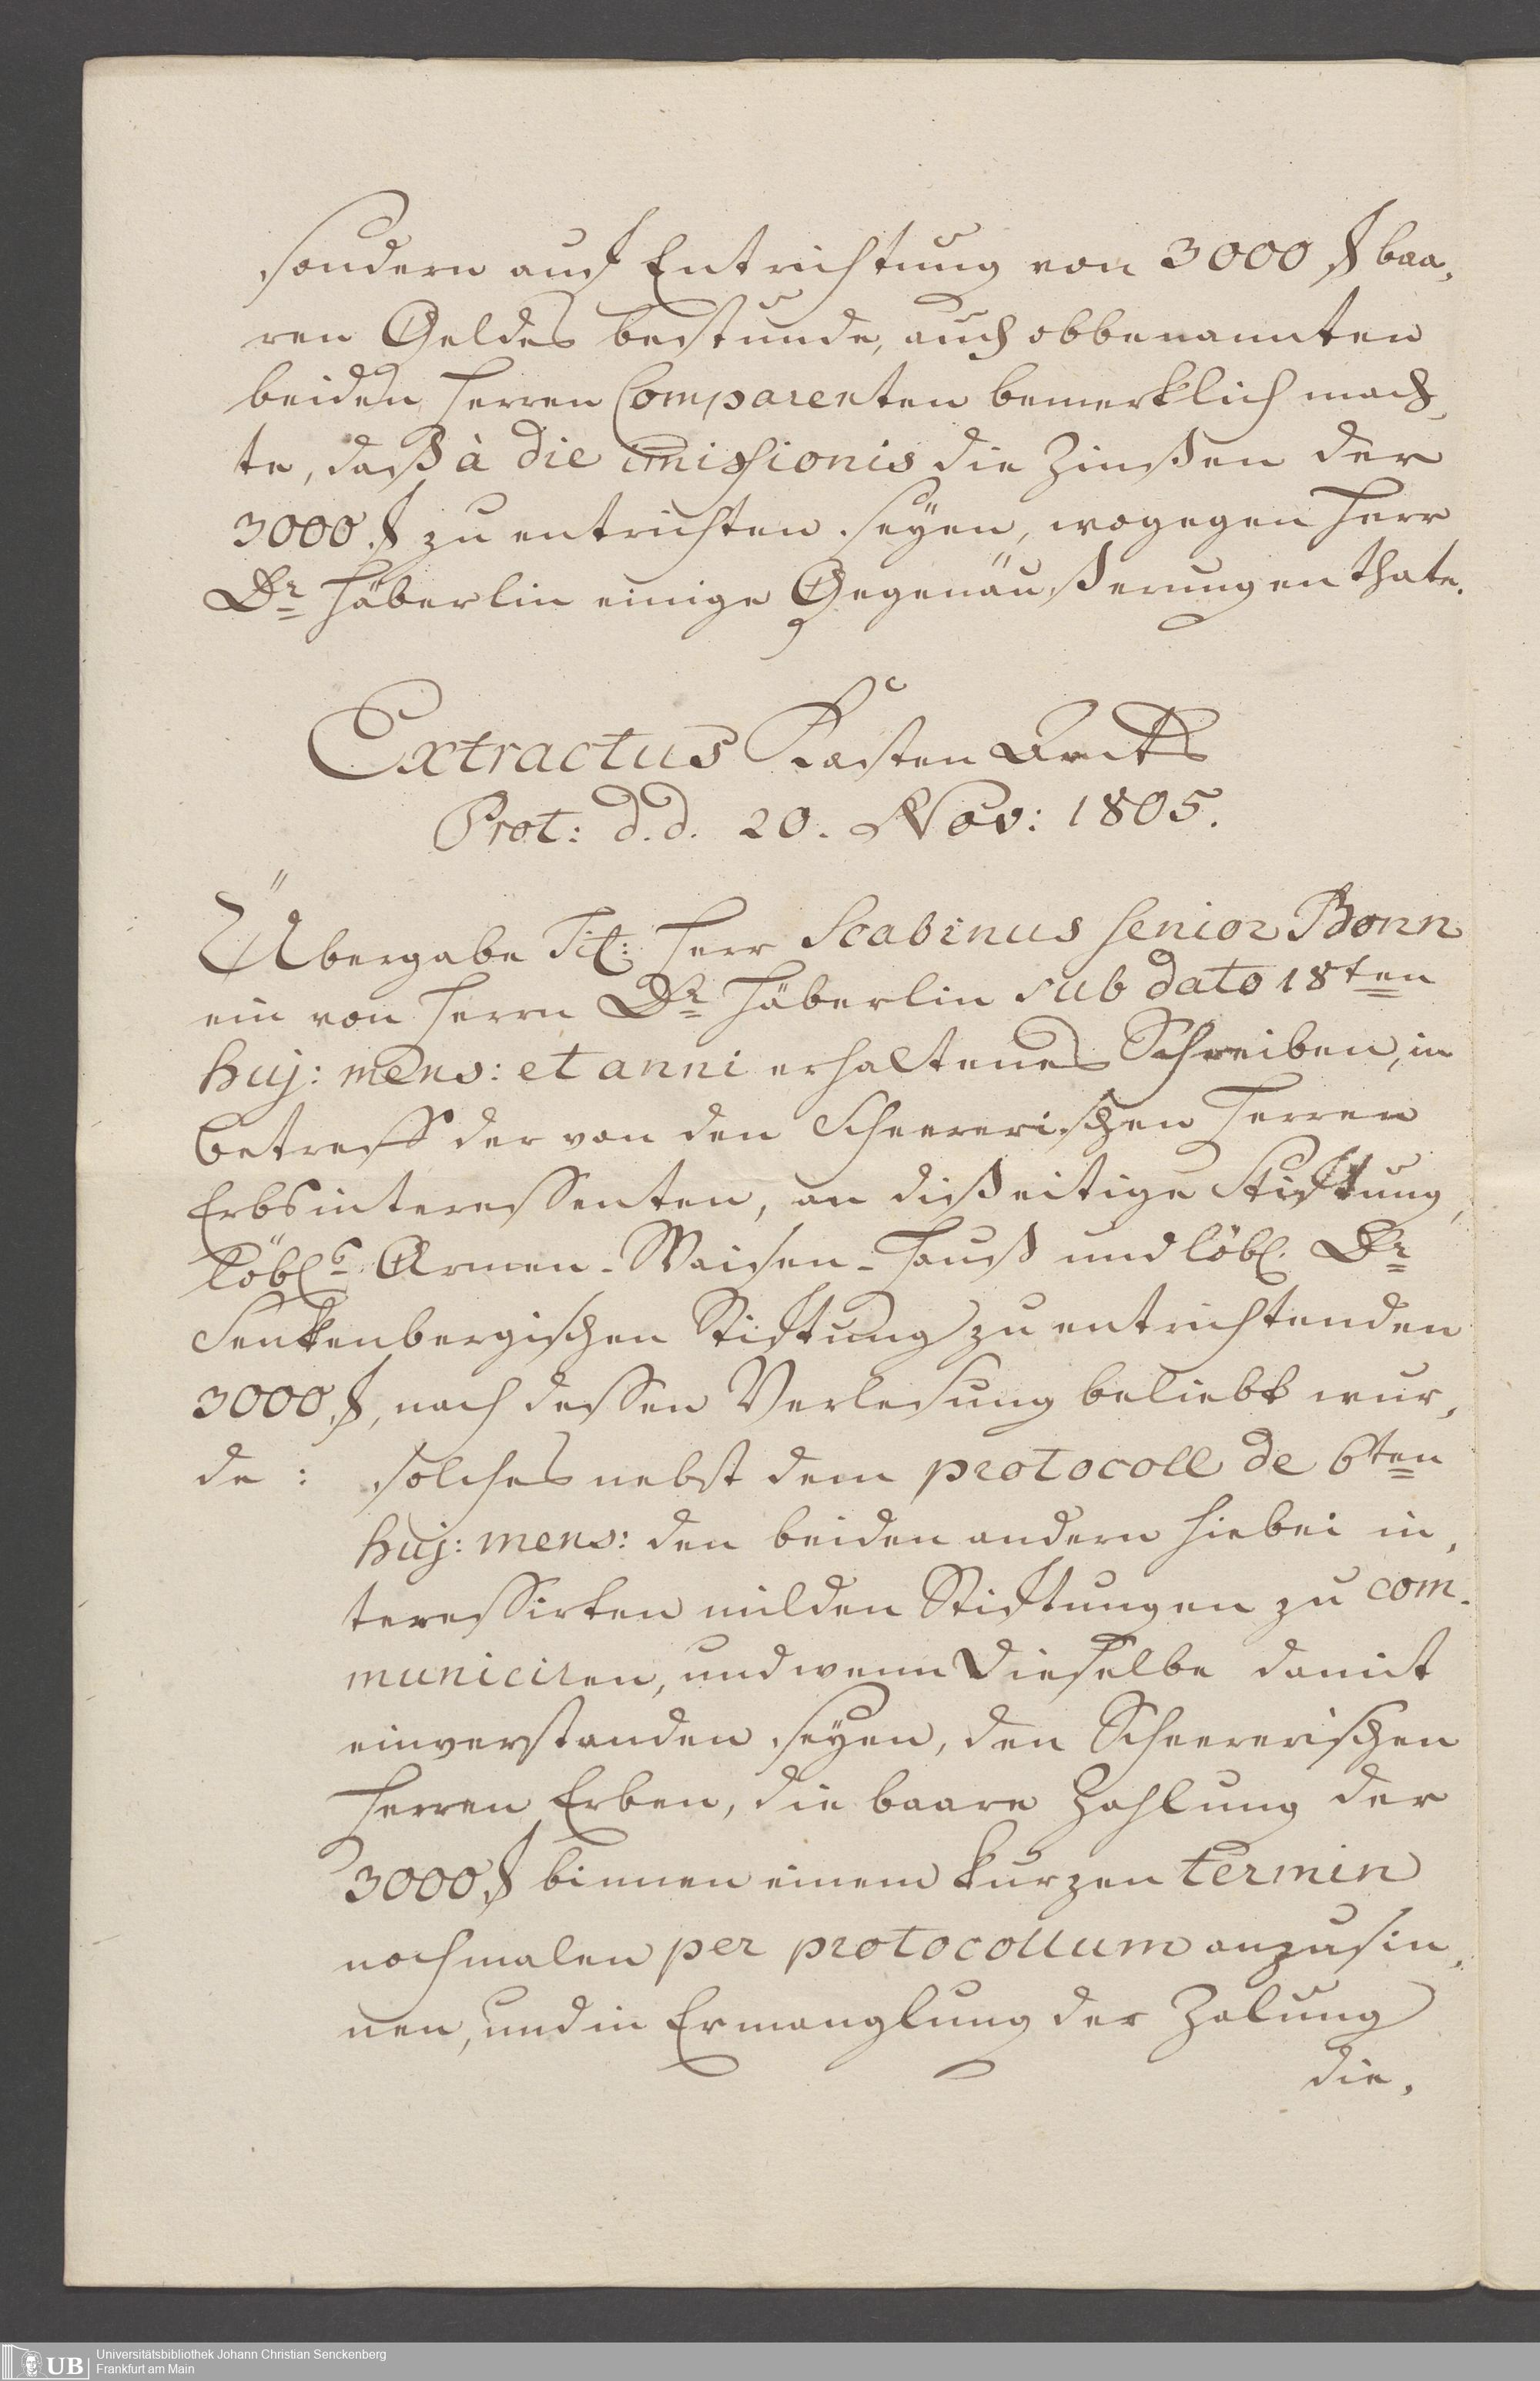 sondern auf Entrichtung von 3000 f baa,
ren Geldes bestunde, auch obbenannten
beiden Herren Comparenten bemerklich mach,
te, daß à die imissionis die Zinßen der
3000 f zu entrichten seÿen, wogegen Herr
Dr Häberlin einige Gegenäußerungen thate.
Extractus Kasten Amts
Prot: d.d. 20. Nov: 1805.
Übergabe Tit: Herr Scabinus senior Bonn
ein von Herrn Dr Häberlin sub dato 18ten
huj: mens: et anni erhaltenes Schreiben, in
betreff der von den Scheererischen Herren
Erbsinteressenten, an dießeitige Stiftung,
löbls Armen-Waisen-Hauß und löbl. Dr
Senkenbergischen Stiftung zu entrichtenden
3000 f, nach dessen Verlesung beliebt wur,
de: solches nebst dem protocoll de 6ten
huj: mens: den beiden andern hiebei in,
teressirten milden Stiftungen zu com-
municiren, und wenn Dieselbe damit
einverstanden seÿen, den Scheererischen
Herren Erben, die baare Zahlung der
3000 f binnen einem kurzen termin
nochmalen per protocollum anzusin,
nen, und in Ermanglung der Zalung
die,
Universitätsbibliothek Johann Christian Senckenberg
Frankfurt am Main
UB